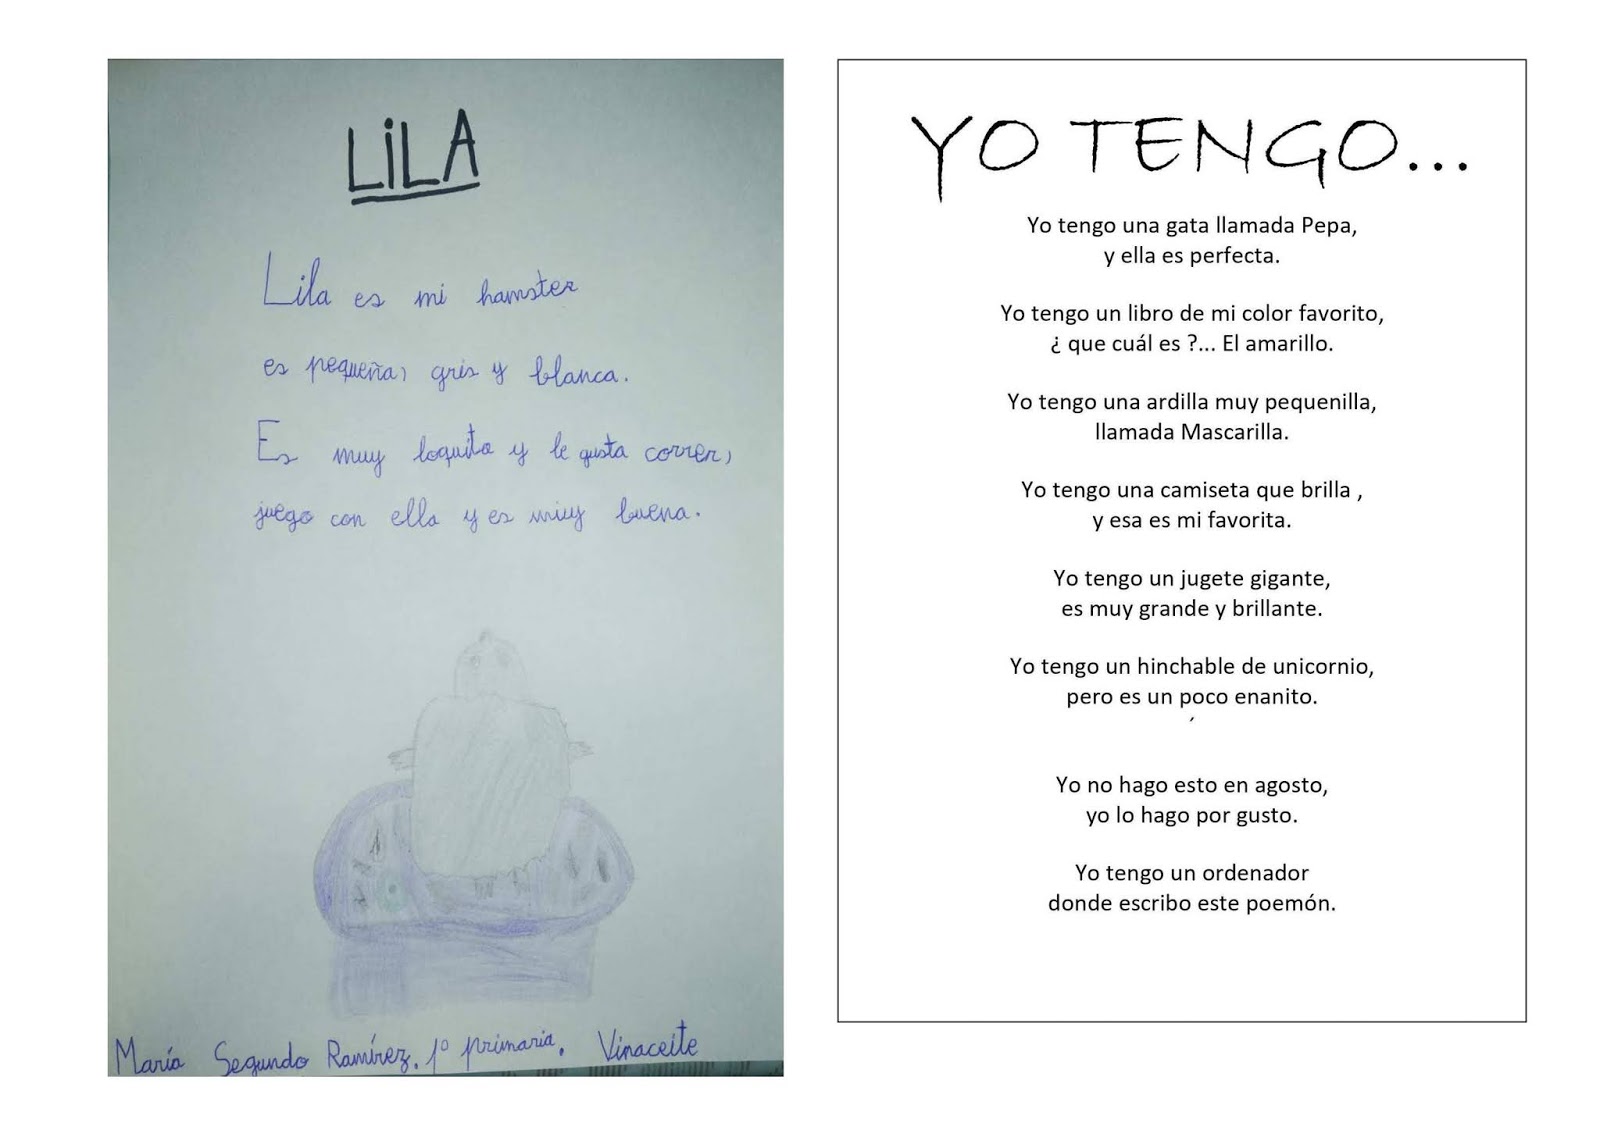 LiLA
Lila es mi hamster
es pequeña, gris y blanca.
Es muy loquita y le gusta correr,
juego con ella y es muy buena.
María Segundo Ramírez. 1º primaria. Vinaceite
YO TENGO...
Yo tengo una gata llamada Pepa,
y ella es perfecta.
Yo tengo un libro de mi color favorito,
¿ que cuál es ?... El amarillo.
Yo tengo una ardilla muy pequenilla,
llamada Mascarilla.
Yo tengo una camiseta que brilla ,
y esa es mi favorita.
Yo tengo un jugete gigante,
es muy grande y brillante.
Yo tengo un hinchable de unicornio,
pero es un poco enanito.
´
Yo no hago esto en agosto,
yo lo hago por gusto.
Yo tengo un ordenador
donde escribo este poemón.